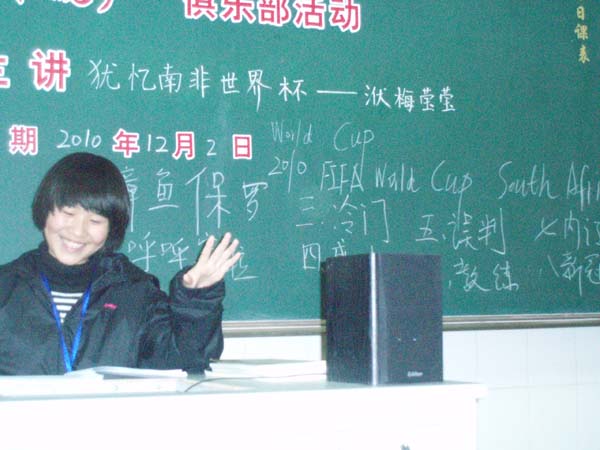 俱乐部活动
日课表
主讲 犹忆南非世界杯——洑梅莹莹
期 2010年12月2日
World Cup
2010 FIFA World Cup South Afri
章鱼保罗
三.冷门 五.误判 七内讧
呼呼 四 教练 八新冠
Edifier